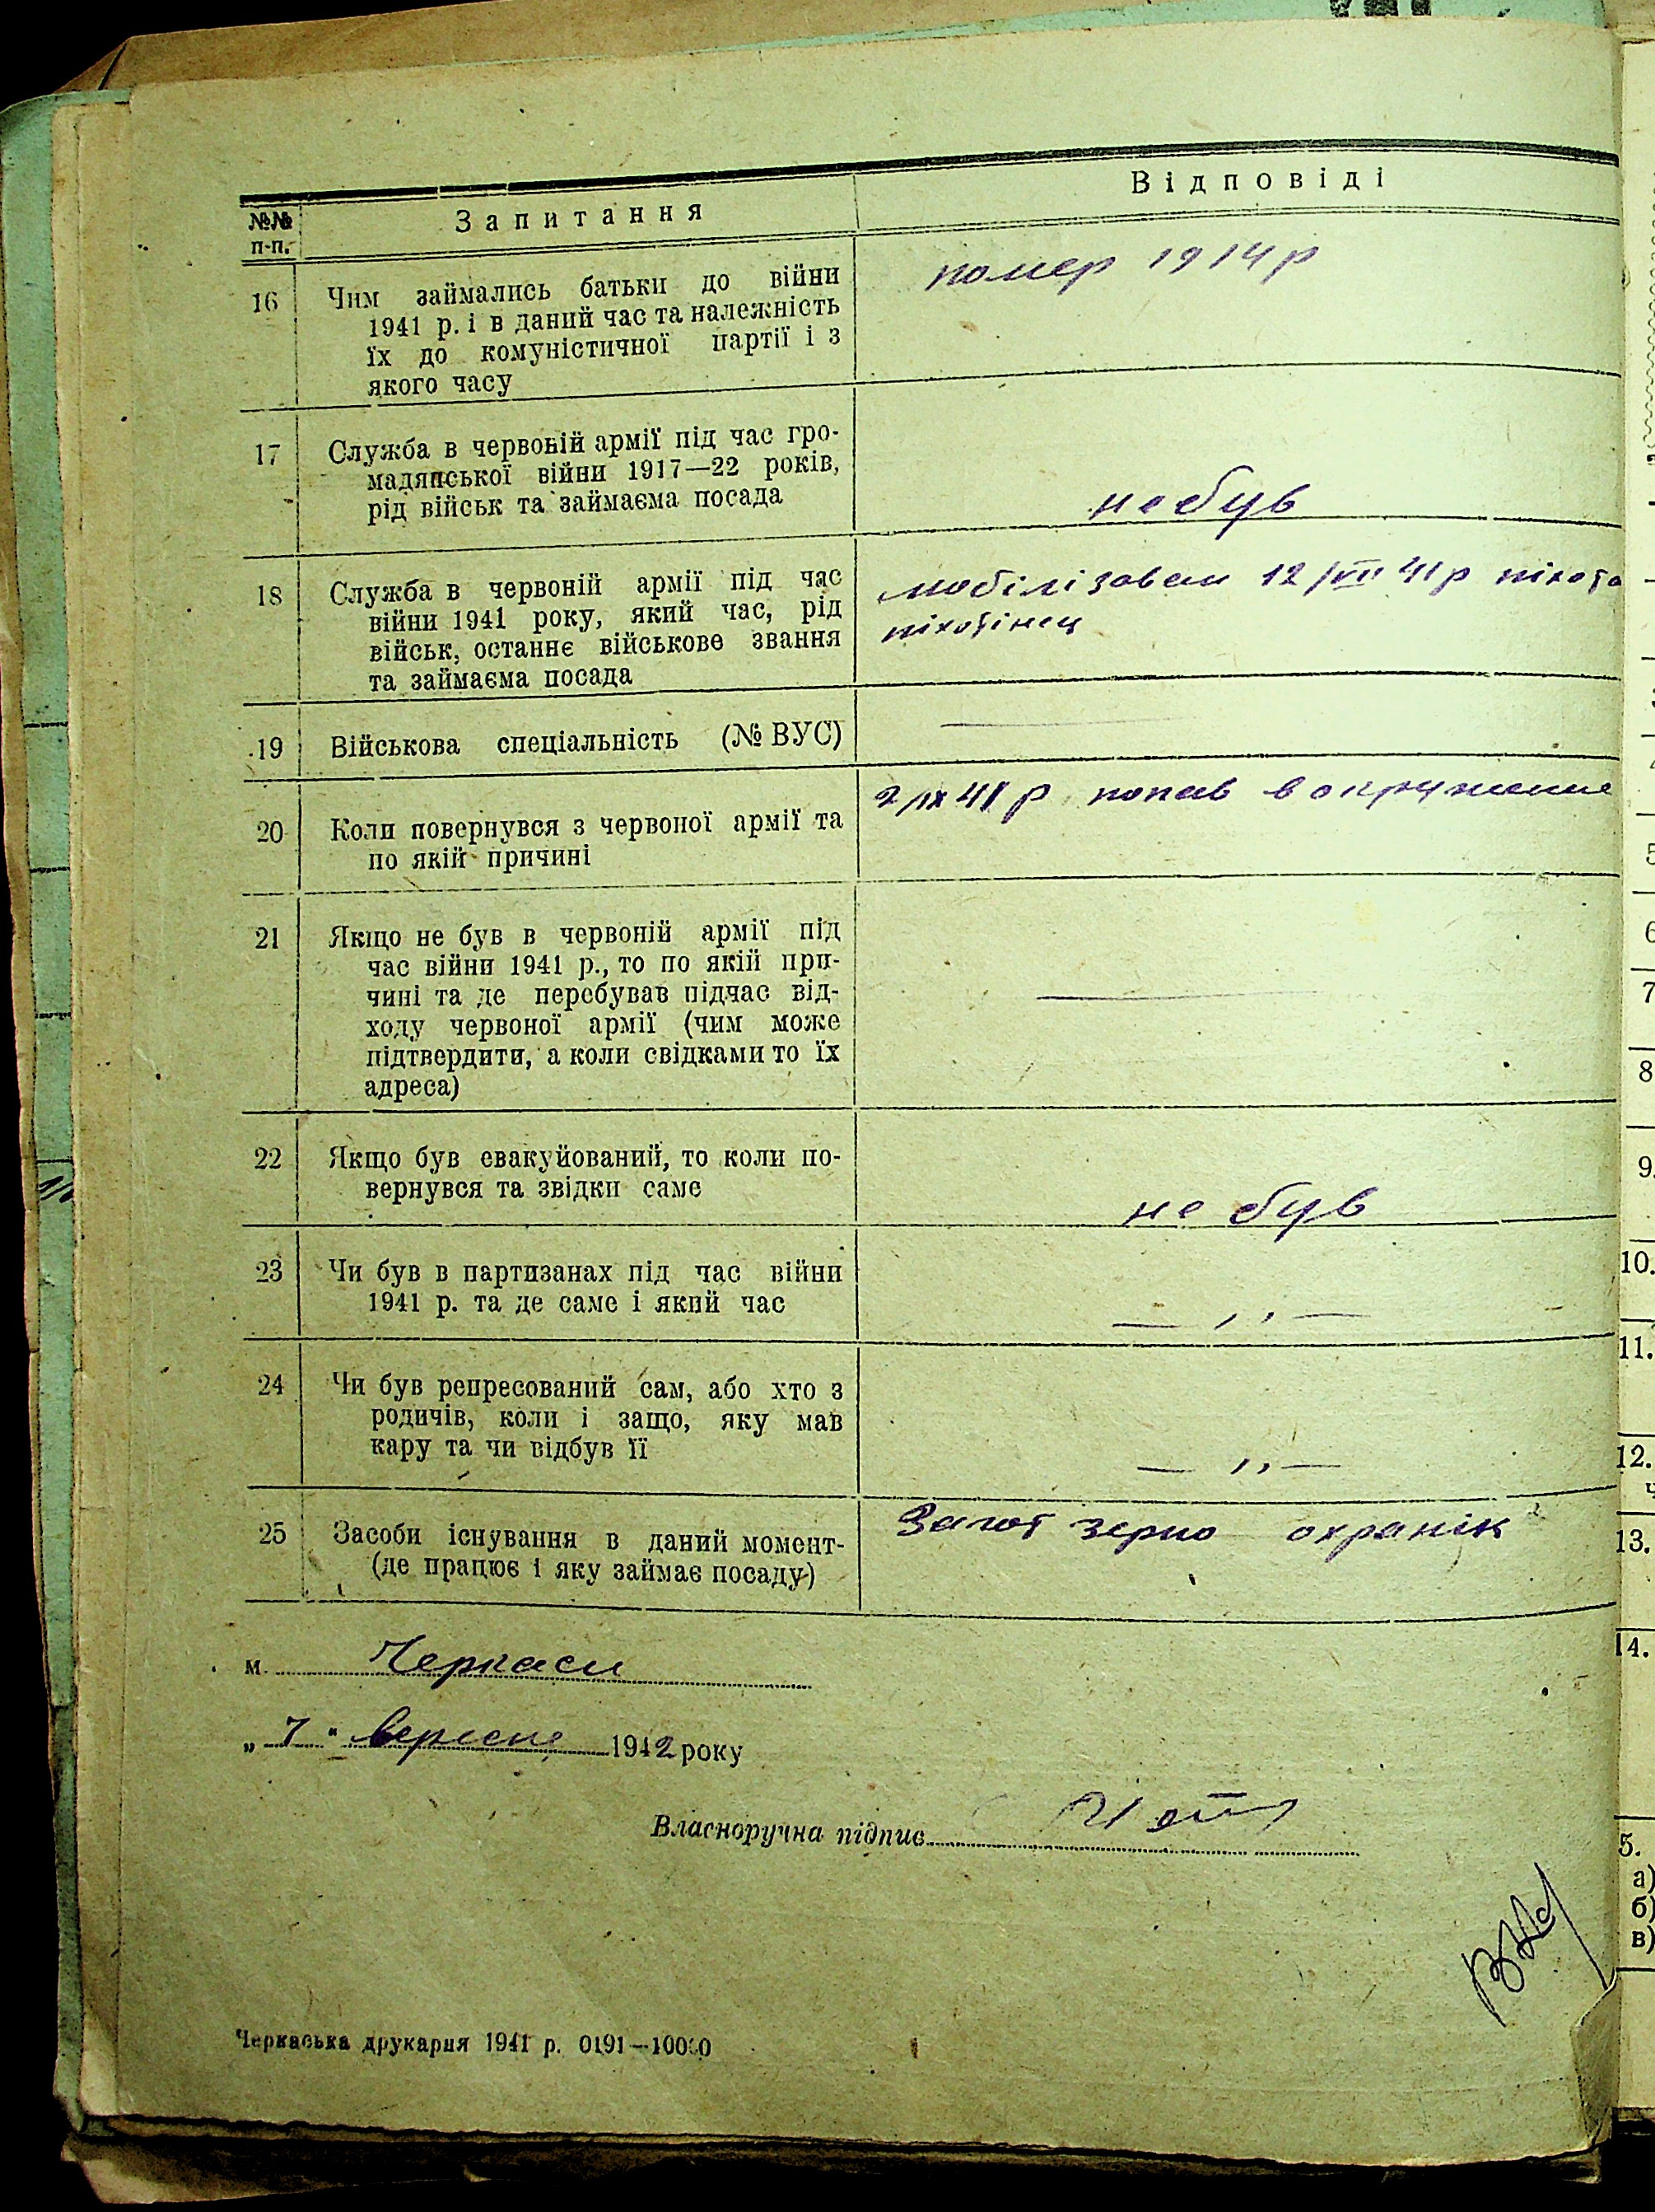 Відповіді
№№ Запитання
п-п.
16 Чим займались батьки до війни помер 1914 р
1941 р. і в даний час та належність
їх до комуністичної партії і з
якого часу
17 Служба в червоній армії під час гро-
мадянської війни 1917—22 років,
рід військ та займаєма посада не був
18 Служба в червоній армії під час мобілізован 12/VII 41 р піхота
війни 1941 року, який час, рід піхотінец
військ, останнє військове звання
та займаєма посада
19 Військова спеціальність (№ ВУС) —
20 Коли повернувся з червоної армії та 2/IX 41 р попав в окружение
по якій причині
21 Якщо не був в червоній армії під
час війни 1941 р., то по якій при-
чині та де перебував підчас від- —
ходу червоної армії (чим може
підтвердити, а коли свідками то їх
адреса)
22 Якщо був евакуйований, то коли по-
вернувся та звідки саме не був
23 Чи був в партизанах під час війни
1941 р. та де саме і який час — ,, —
24 Чи був репресований сам, або хто з
родичів, коли і защо, яку мав
кару та чи відбув її — ,, —
25 Засоби існування в даний момент- Загот зерно охранік
(де працює і яку займає посаду)
м. Черкаси
„ 7 " вересня 1942 року
Власноручна підпис
Черкаська друкарня 1941 р. 0191—10000
5
6
7
8
9.
10.
11.
12.
13.
14.
5.
а)
б)
в)